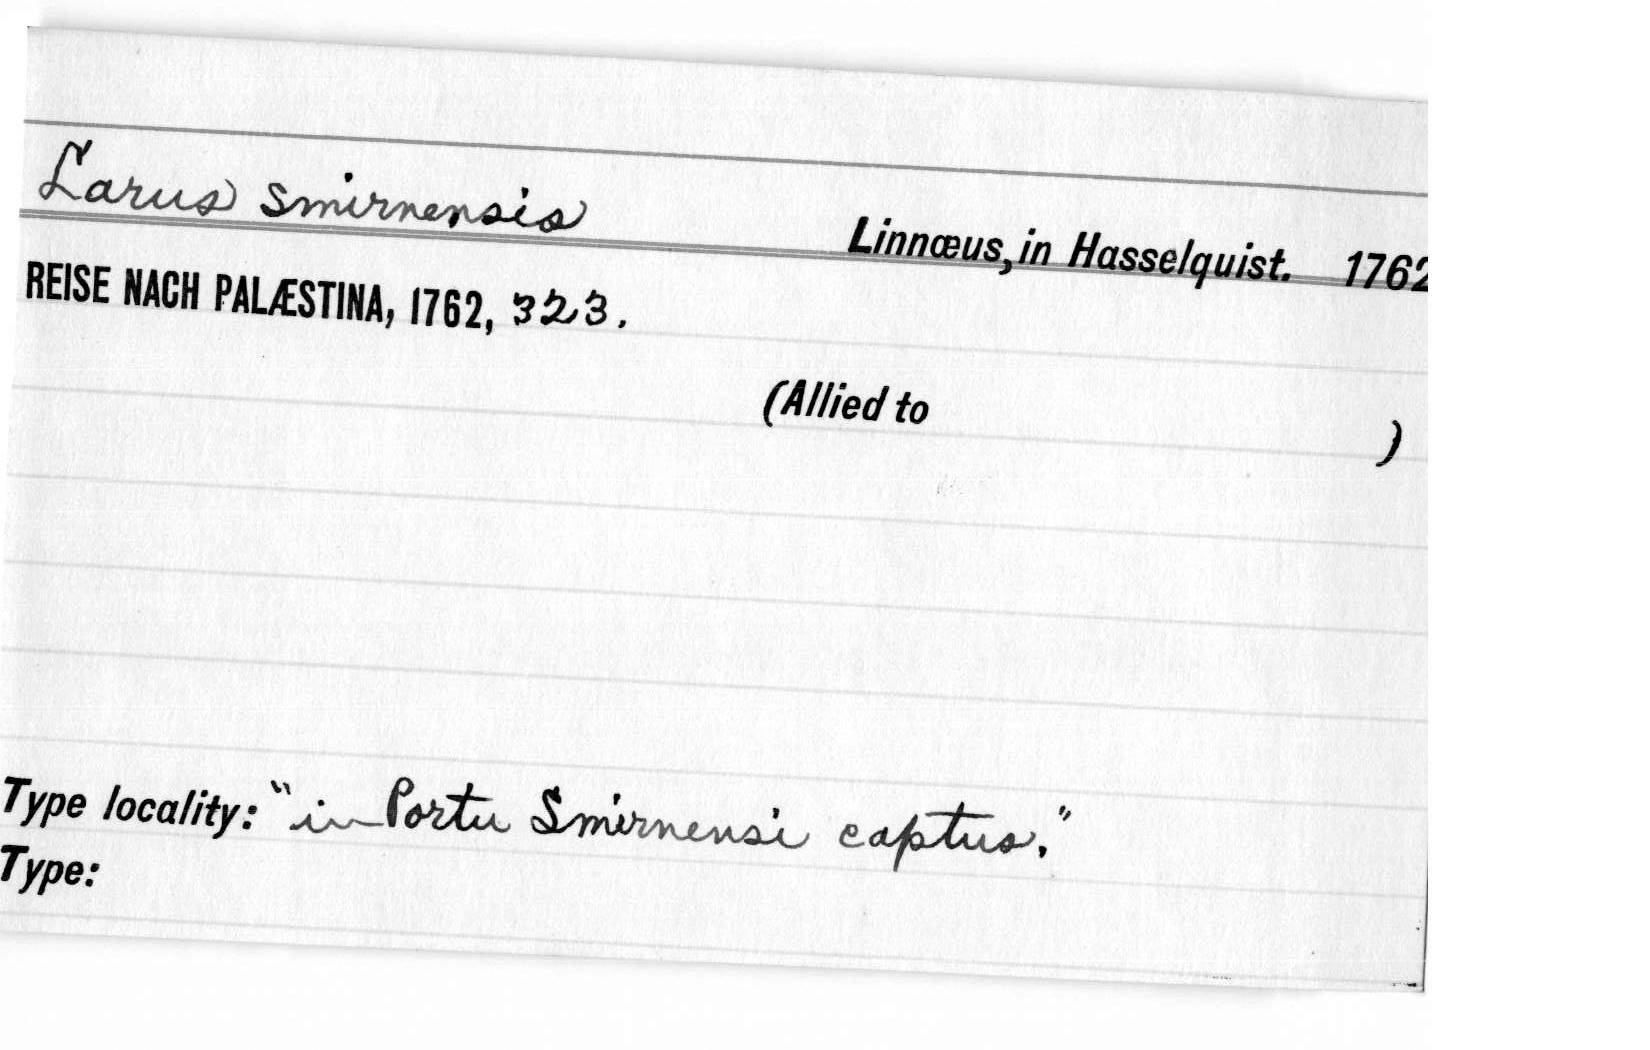 Larus smirnensis Linnæus, in Hasselquist. 1762
REISE NACH PALÆSTINA, 1762, 323.
(Allied to )
Type locality: "in Portu Smirnensi captus."
Type: